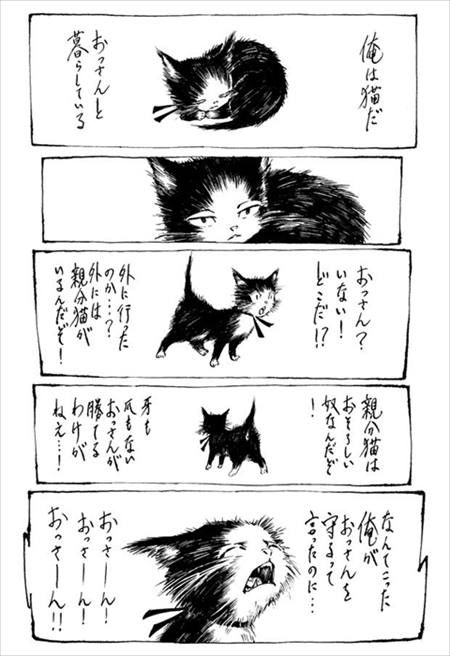 俺は猫だ
おっさんと
暮らしている
おっさん?
いない!
どこだ!?
外に行った
のか…?
外には
親分猫が
いるんだぞ!
親分猫は
おそろしい
奴なんだぞ
!
牙も
爪もない
おっさんが
勝てる
わけが
ねえ…!
なんてこった
俺が
おっさんを
守るって
言ったのに…
おっさーん!
おっさーん!
おっさーん!!